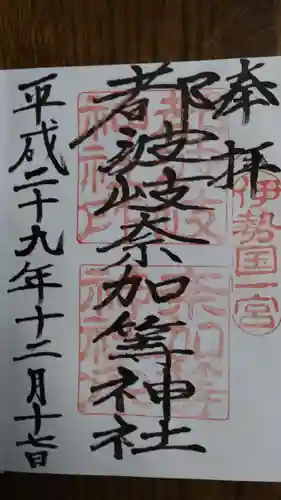 奉拝
伊勢国一宮
都波岐奈加等神社
平成二十九年十二月十七日